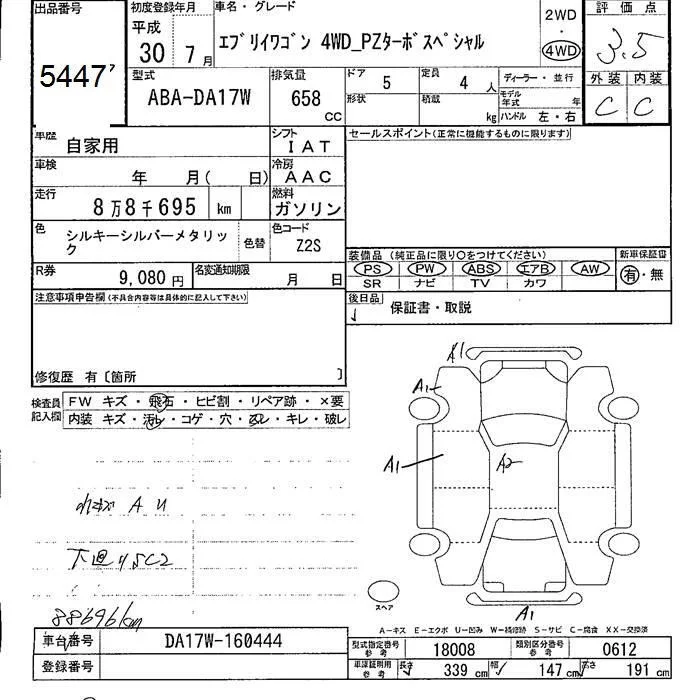 出品番号 初度登録年月 車名・グレード 2WD 評価点
5447 平成 30年 7月 エブリイワゴン 4WD_PZターボスペシャル 4WD 3.5
型式 排気量 ドア 5 定員 4人 ディーラー・並行 外装 内装
ABA-DA17W 658 CC 形状 積載 kg モデル年式 年 ハンドル 左・右 C C
車歴 自家用 シフト IAT セールスポイント(正常に機能するものに限ります)
車検 年 月( 日) 冷房 AAC
走行 8万8千695 km 燃料 ガソリン
色 シルキーシルバーメタリック 色替 色コード Z2S
装備品(純正品に限り○をつけてください) 新車保証書
R券 9,080円 名変通知期限 月 日 PS PW ABS エアB AW 有・無
SR ナビ TV カワ
注意事項申告欄(不具合内容等は具体的に記入して下さい) 後日品 保証書・取説
修復歴 有〔箇所 〕
検査員記入欄 FW キズ・飛石・ヒビ割・リペア跡・×要
内装 キズ・汚レ・コゲ・穴・スレ・キレ・破レ
A1
A1
A1 A2
A U
下廻りSC2
スペア
A1
88696km
A-キズ E-エクボ U-凹み W-補修跡 S-サビ C-腐食 XX-交換済
車台番号 DA17W-160444 型式指定番号 参考 18008 類別区分番号 参考 0612
登録番号 車庫証明用 参考 長さ 339 cm 幅 147 cm 高さ 191 cm